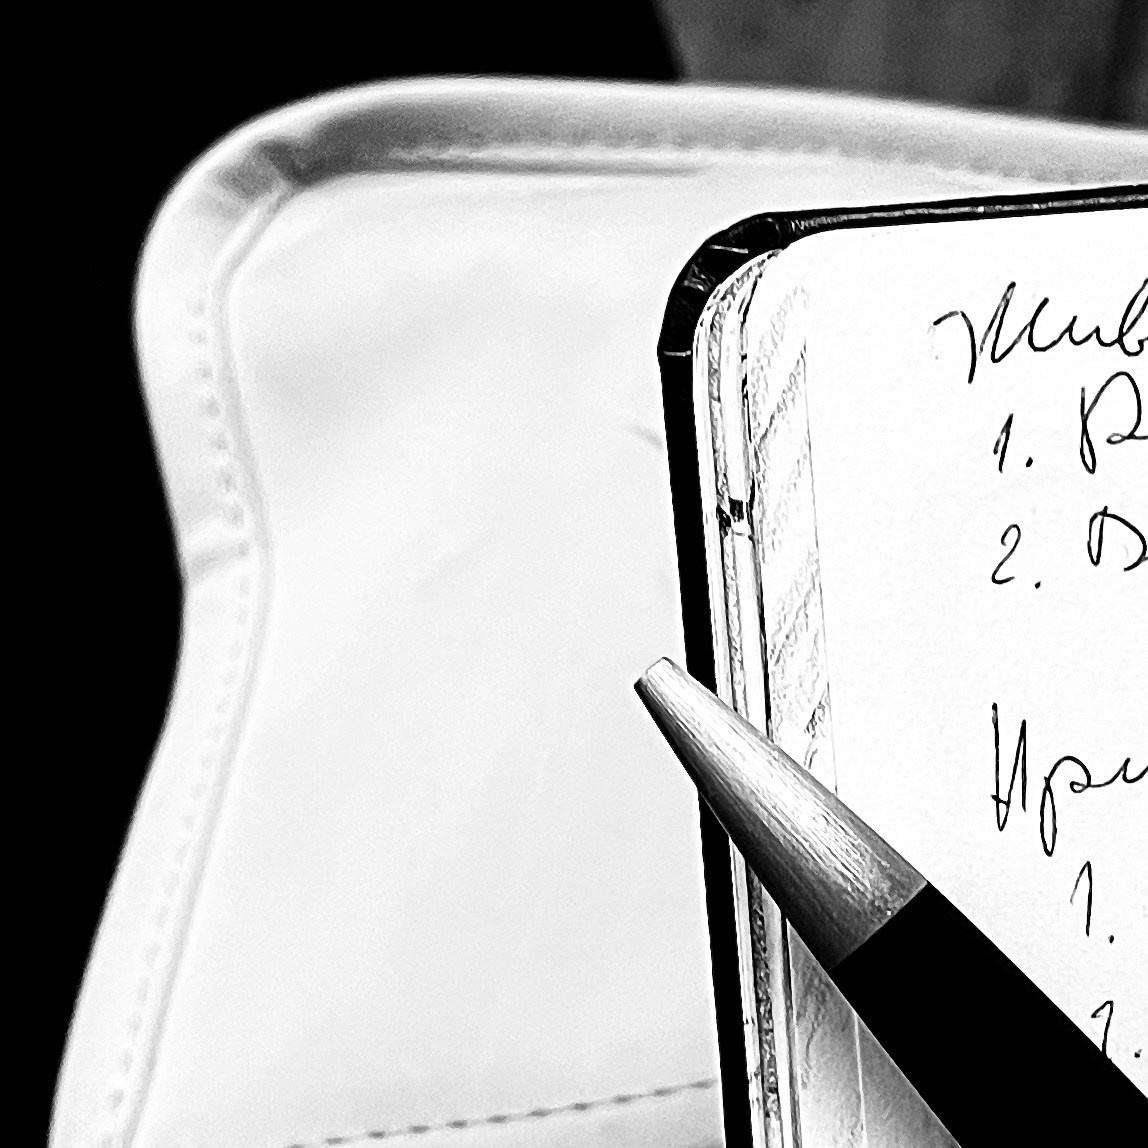 Жив
1. В
2. В
При
1.
2.